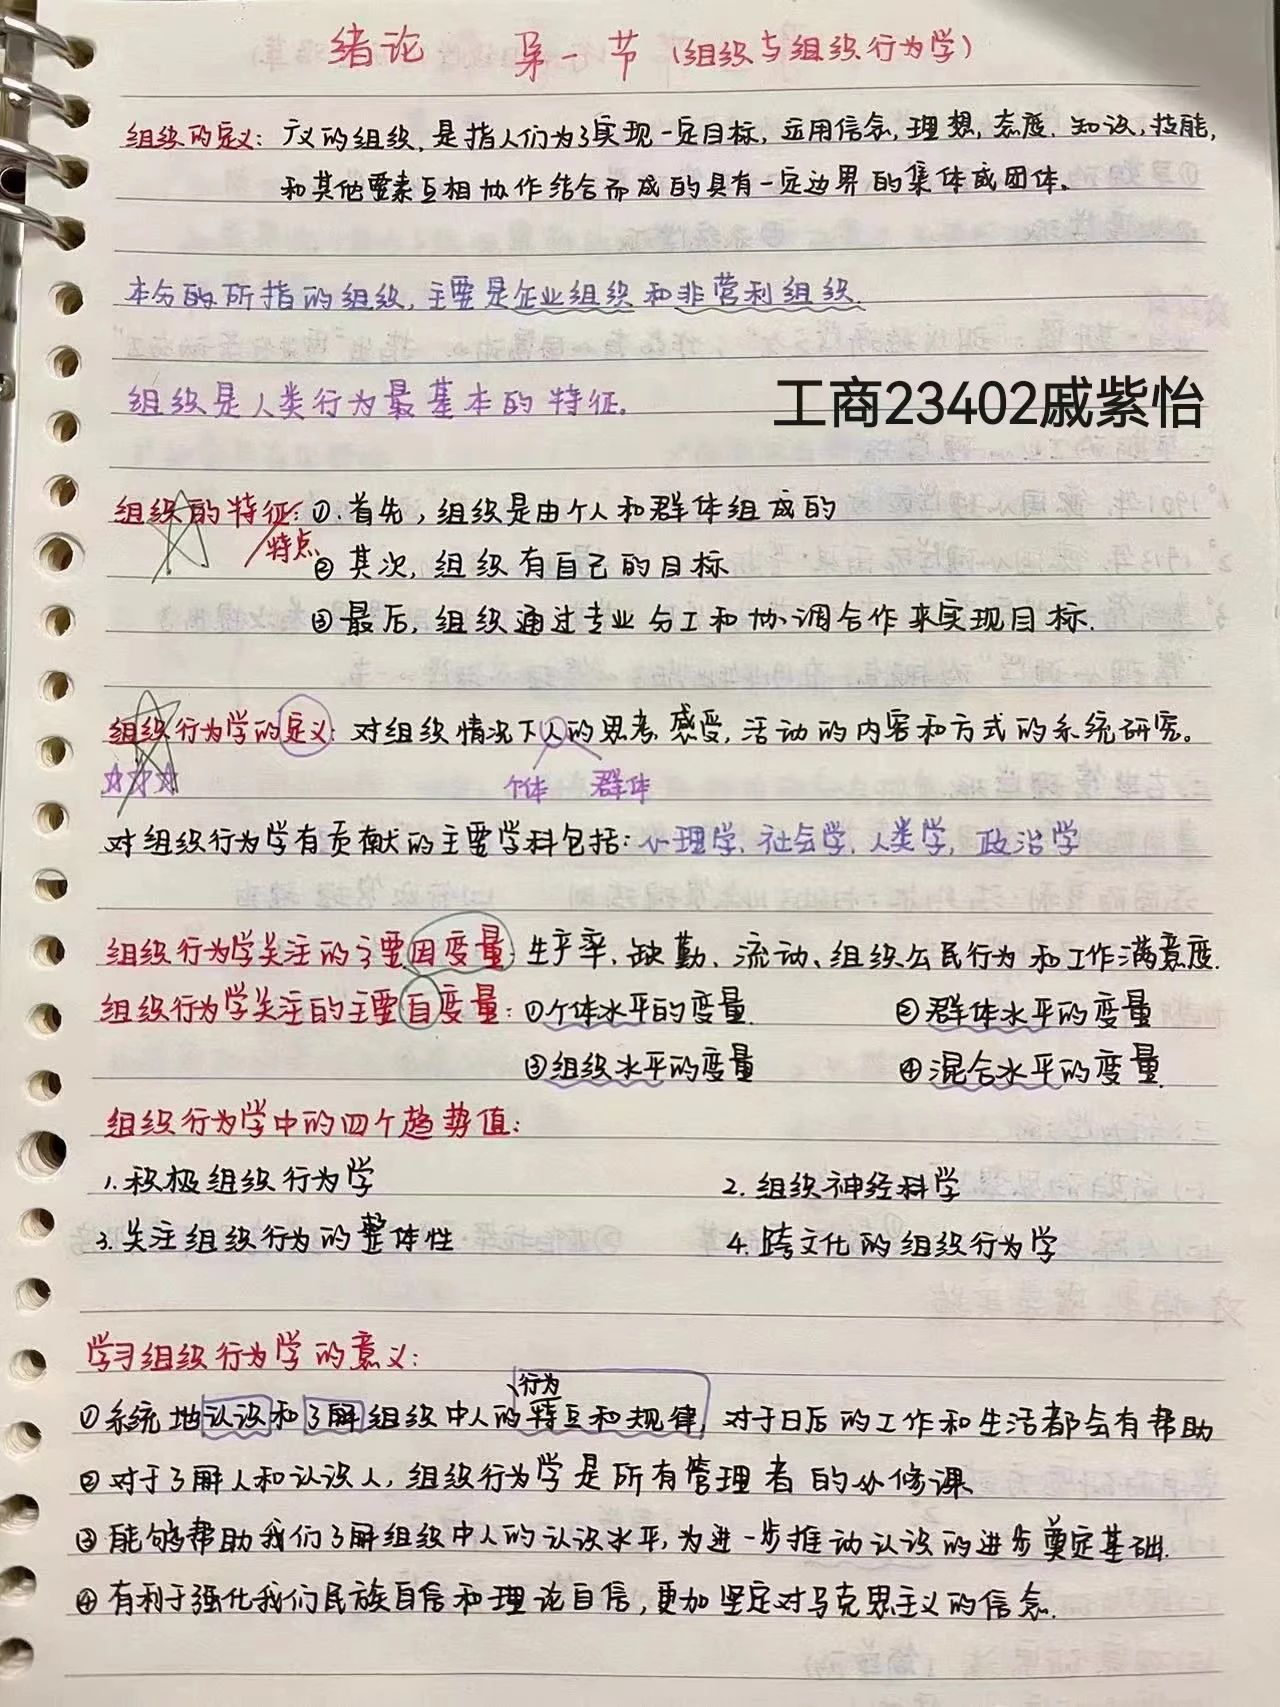 绪论 第一节(组织与组织行为学)
组织的定义: 广义的组织, 是指人们为了实现一定目标, 运用信念, 理想, 态度, 知识, 技能,
和其他要素互相协作结合而成的具有一定边界的集体或团体.
本书所指的组织, 主要是企业组织和非营利组织.
组织是人类行为最基本的特征.
工商23402戚紫怡
组织的特征: ①.首先, 组织是由个人和群体组成的
特点
②其次, 组织有自己的目标
③最后, 组织通过专业分工和协调合作来实现目标.
组织行为学的定义: 对组织情况下人的思考, 感受, 活动的内容和方式的系统研究。
☆☆☆ 个体 群体
对组织行为学有贡献的主要学科包括: 心理学, 社会学, 人类学, 政治学
组织行为学关注的主要因变量: 生产率、缺勤、流动、组织公民行为和工作满意度.
组织行为学关注的主要自变量: ①个体水平的变量. ②群体水平的变量
③组织水平的变量 ④混合水平的变量.
组织行为学中的四个趋势值:
1.积极组织行为学 2.组织神经科学
3.关注组织行为的整体性 4.跨文化的组织行为学
学习组织行为学的意义:
行为
①系统地认识和了解组织中人的特点和规律, 对于日后的工作和生活都会有帮助
②对于了解人和认识人, 组织行为学是所有管理者的必修课
③能够帮助我们了解组织中人的认识水平, 为进一步推动认识的进步奠定基础.
④有利于强化我们民族自信和理论自信, 更加坚定对马克思主义的信念.